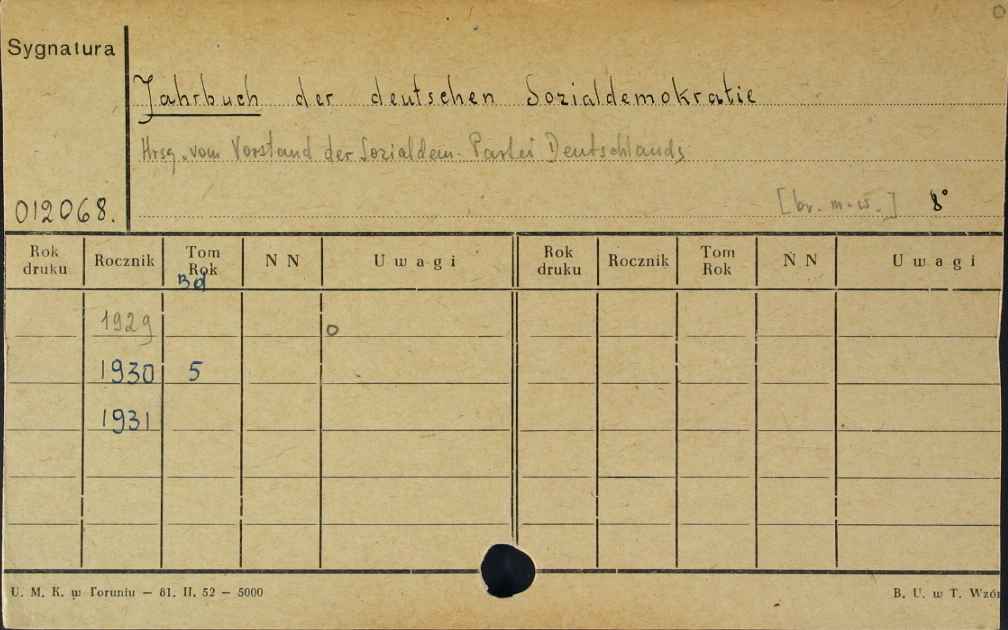 Sygnatura
Jahrbuch der deutschen Sozialdemokratie
Hrsg. vom Vorstand der Sozialdem. Partei Deutschlands
012068.
[br. m-w.] 8°
Rok druku Rocznik Tom Rok N N Uwagi Rok druku Rocznik Tom Rok N N Uwagi
Bd
1929 o
1930 5
1931
U. M. K. w Toruniu — 61. II. 52 — 5000 B. U. w T. Wzór